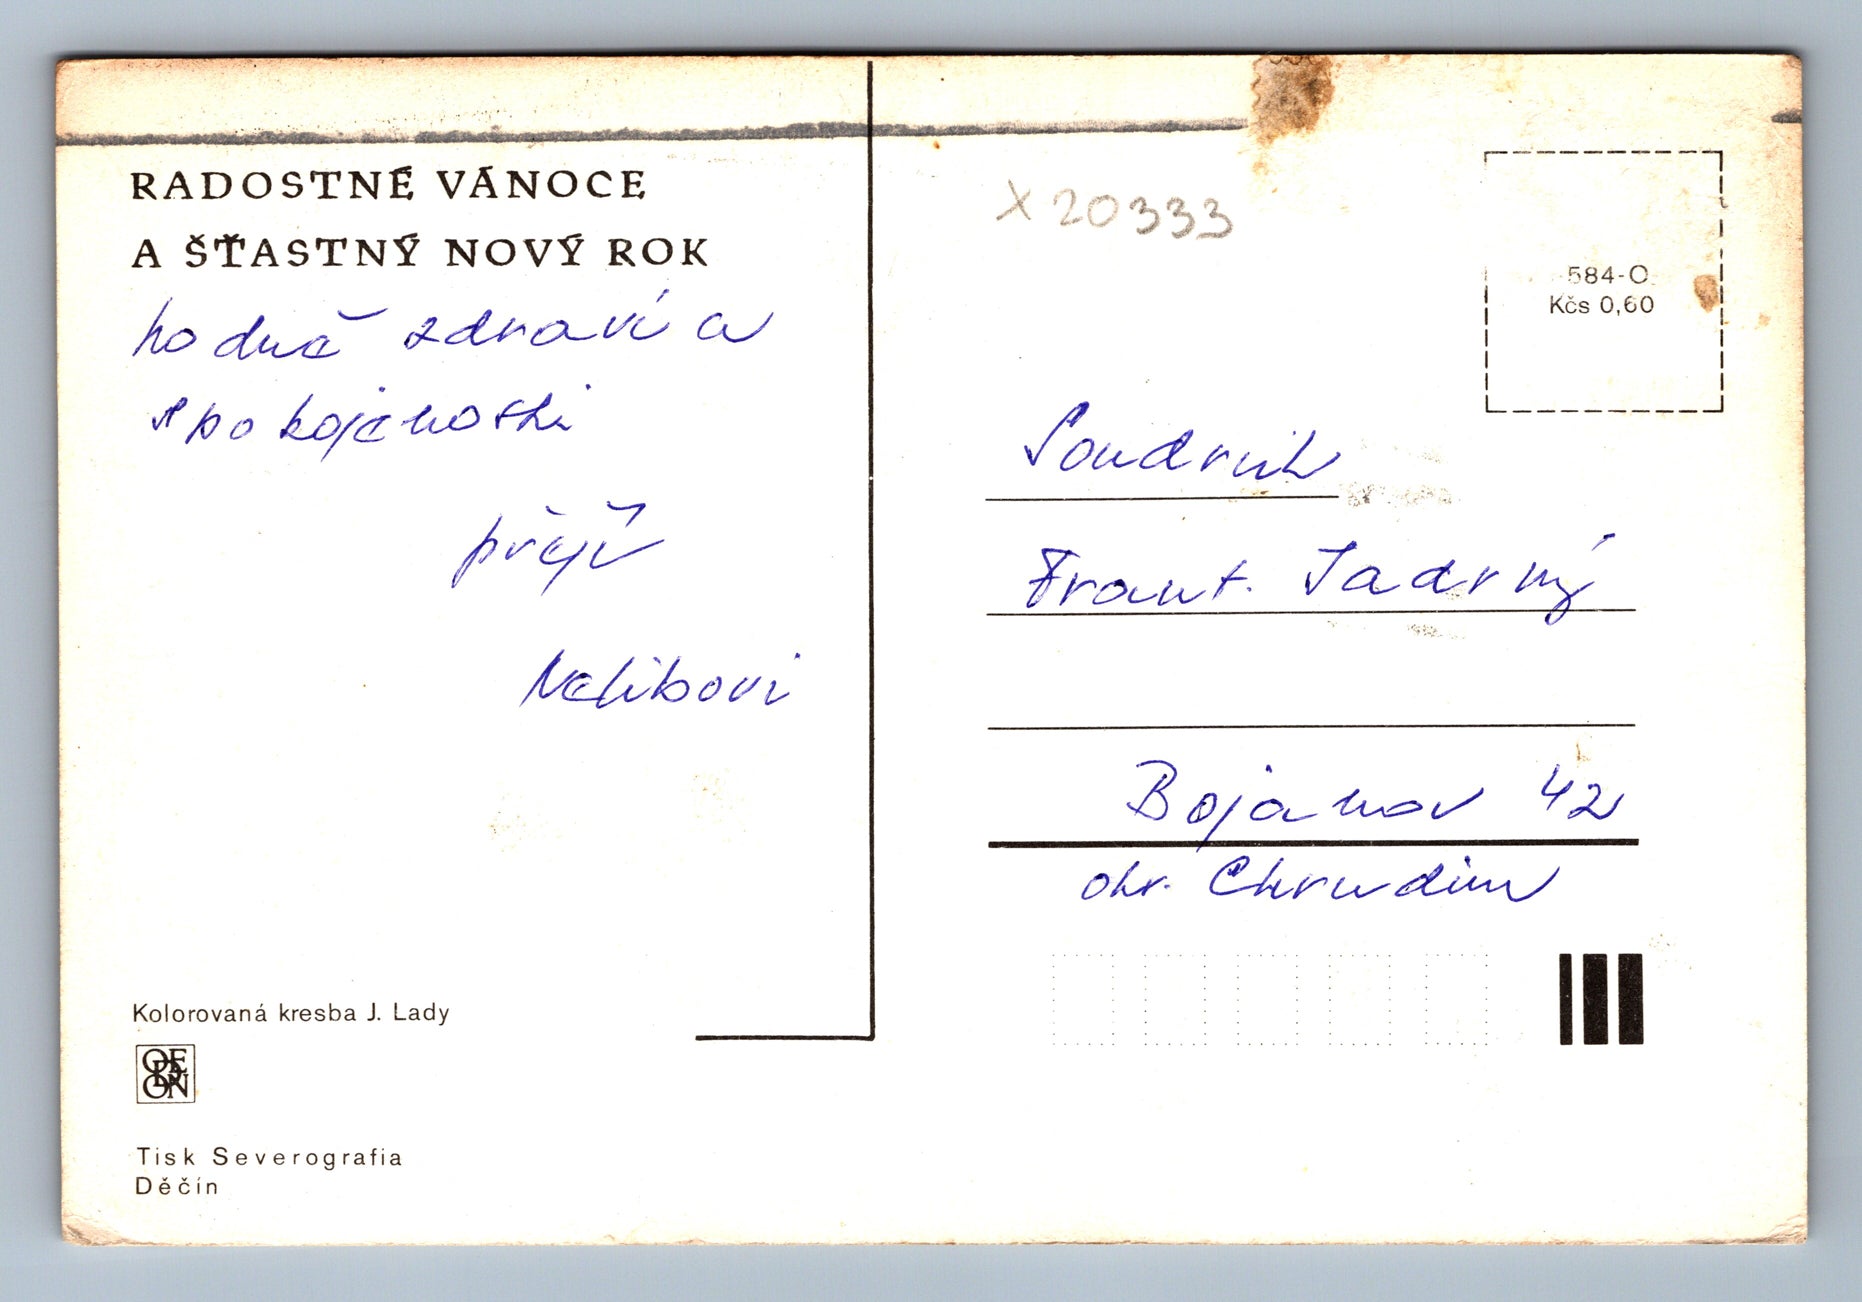 RADOSTNÉ VÁNOCE
A ŠŤASTNÝ NOVÝ ROK
hodně zdraví a
spokojenosti
přejí
Nelibovi
Kolorovaná kresba J. Lady
ODEON
Tisk Severografia
Děčín
X 20333
584-O
Kčs 0,60
Soudruh
Frant. Jadrný
Bojanov 42
okr. Chrudim